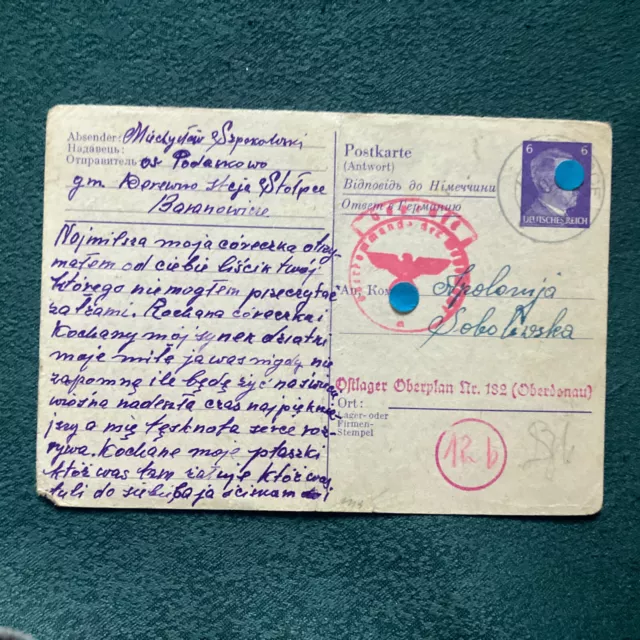 Absender: Miechysław Szpokowski
Надавець:
Отправитель: os Podankowo
gm Derewno stcja Stołpce
Baranowicze
Najmilsza moja córeczka otrzy
małem od ciebie liścik twój
którego niemogłem przeczytać
załzami. Kochana córeczko i
Kochany mój synek dziatki
moje miłe ja was nigdy nie
zapomną ile będę żyć na świe
wiosna nadeszła czas najpiękniej
szy a mię tęsknota serce roz
rywa. Kochane moje ptaszki
któż was tam żałuje któż was
tuli do siebie ja ściskam i
Postkarte
(Antwort)
Відповідь до Німеччини
Ответ в Германию
6 6
DEUTSCHES REICH
Oberkommando der
An:
Apolonija
Sobolewska
Ostlager Oberplan Nr. 132 (Oberdonau)
Ort:
Lager- oder
Firmen-
Stempel
12 b